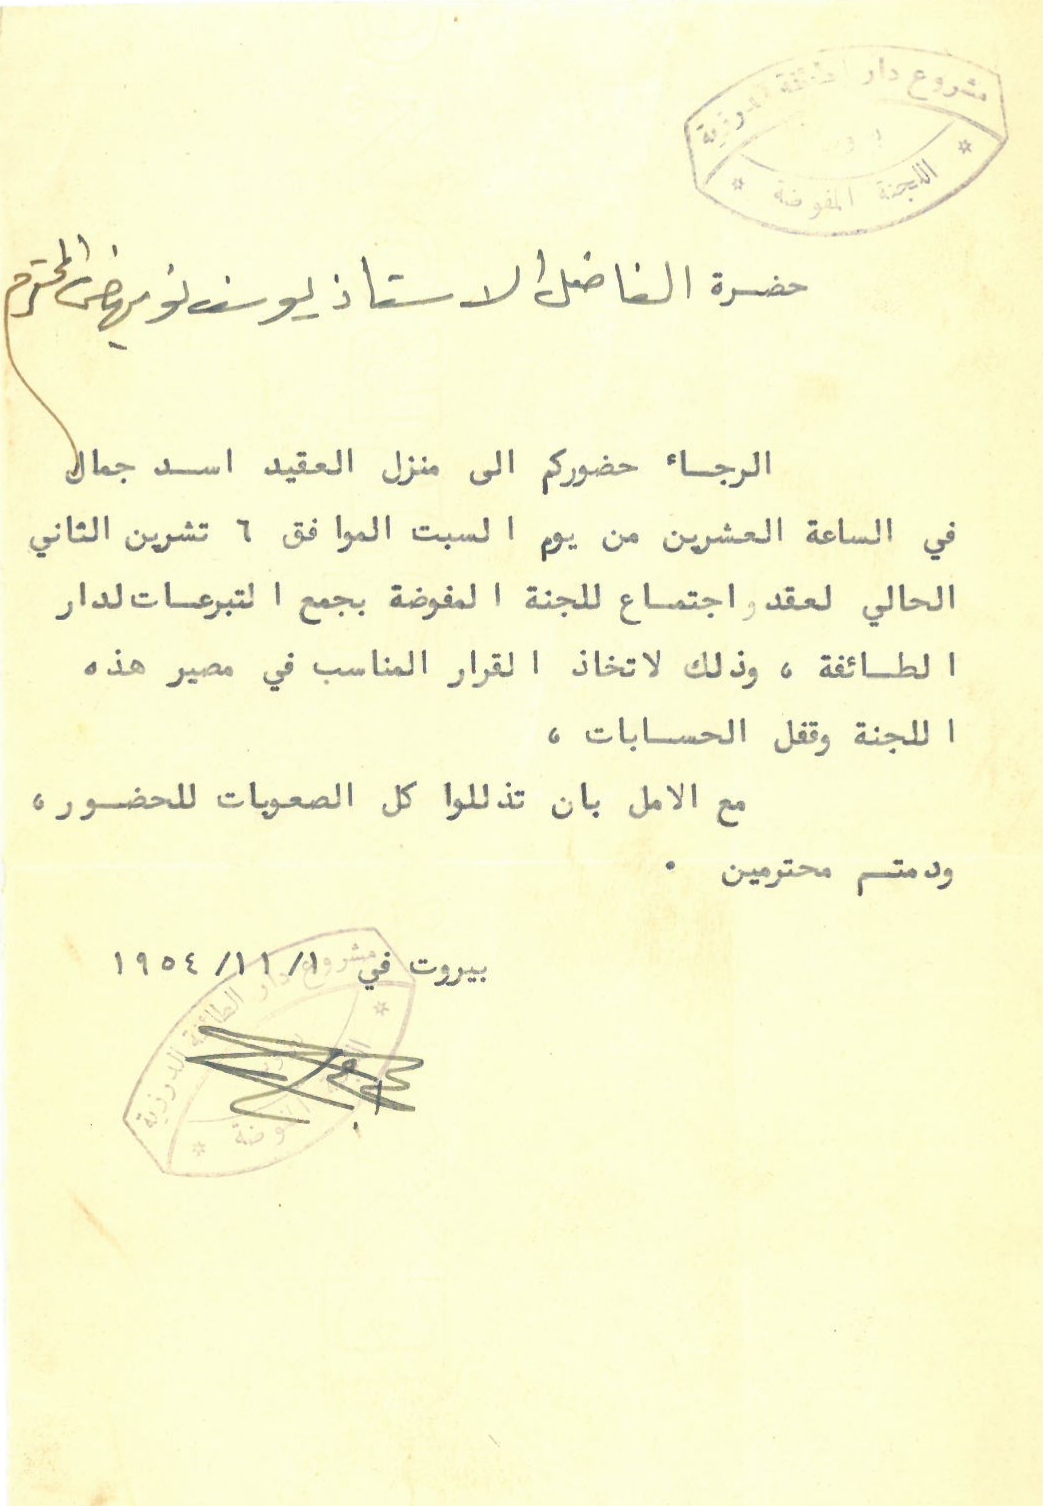 مشروع دار الطائفة الدرزية
بيروت
اللجنة المفوضة
حضرة الفاضل الاستاذ يوسف نويهض المحترم
الرجاء حضوركم الى منزل العقيد اسد جمال
في الساعة العشرين من يوم السبت الموافق ٦ تشرين الثاني
الحالي لعقد اجتماع للجنة المفوضة بجمع التبرعات لدار
الطائفة ، وذلك لاتخاذ القرار المناسب في مصير هذه
اللجنة وقفل الحسابات ،
مع الامل بان تذللوا كل الصعوبات للحضور ،
ودمتم محترمين .
بيروت في ١/ ١١/ ١٩٥٤
مشروع دار الطائفة الدرزية
بيروت
اللجنة المفوضة